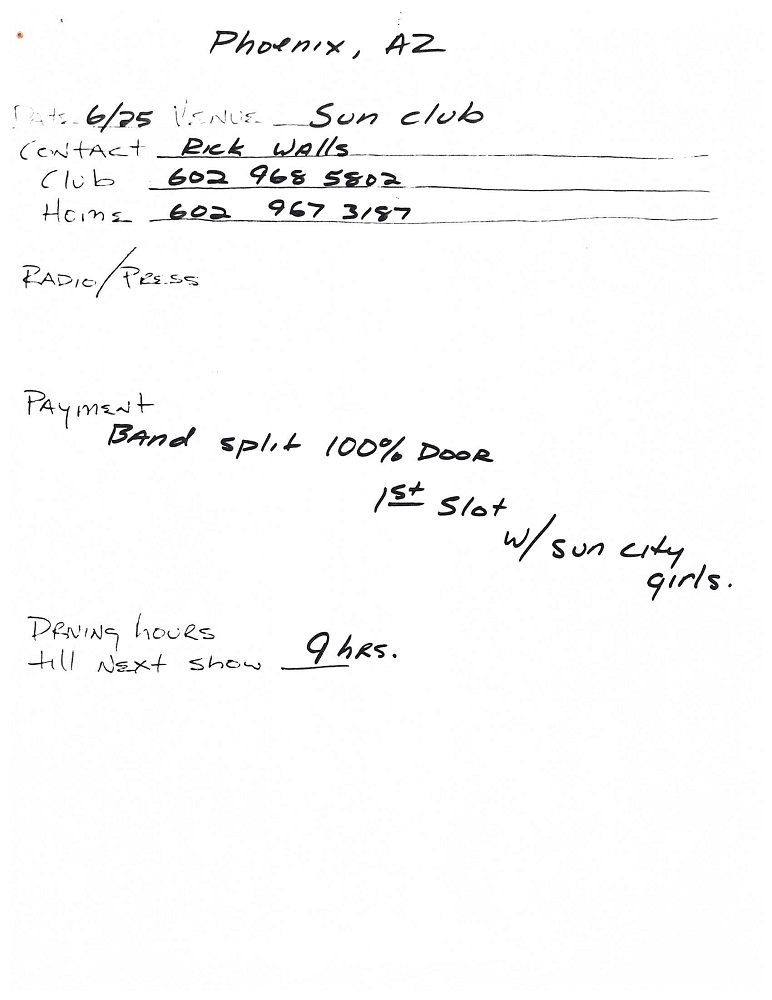 Phoenix, AZ
Date 6/25 Venue Sun club
Contact Rick Walls
Club 602 968 5802
Home 602 967 3187
Radio/Press
Payment
Band split 100% Door
1st Slot
w/ sun city
girls.
Driving hours
till next show 9 hrs.